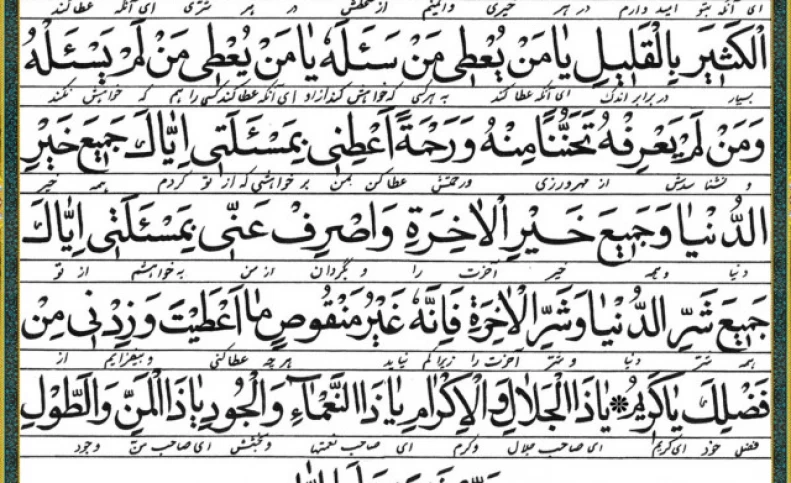 ای آنکه بتو امید دارم در هر خیری وایمنم از خشمش در هر شری ای آنکه عطا کند
الْكَثيرَ بِالْقَليلِ يا مَنْ يُعْطى مَنْ سَئَلَهُ يا مَنْ يُعْطى مَنْ لَمْ يَسْئَلْهُ
بسیار در برابر اندک ای آنکه عطا کند به هرکس که خواهش کند از او ای آنکه عطا کند کسی را هم که خواهش نکند
وَمَنْ لَمْ يَعْرِفْهُ تَحَنُّنًا مِنْهُ وَرَحْمَةً اَعْطِنى بِمَسْئَلَتى اِيّاكَ جَميعَ خَيْرِ
و نشناسدش از مهرورزی ورحمتش عطا کن بمن بر خواهشی که از تو کردم همه خیر
الدُّنْيا وَجَميعَ خَيْرِ الْاخِرَةِ وَاصْرِفْ عَنّى بِمَسْئَلَتى اِيّاكَ
دنیا و همه خیر آخرت را و بگردان از من به خواهشم از تو
جَميعَ شَرِّ الدُّنْيا وَشَرِّ الْاخِرَةِ فَاِنَّهُ غَيْرُ مَنْقُوصٍ ما اَعْطَيْتَ وَزِدْنى مِنْ
همه شر دنیا و شر آخرت را زیرا کم نیاید هرچه عطا کنی و بیفزایم از
فَضْلِكَ يا كَريمُ ❋ يا ذَا الْجَلالِ وَالْاِكْرامِ يا ذَا النَّعْماءِ وَالْجُودِ يا ذَا الْمَنِّ وَالطَّوْلِ
فضل خود ای کریم ای صاحب جلال وکرم ای صاحب نعمتها و بخشش ای صاحب من وجود